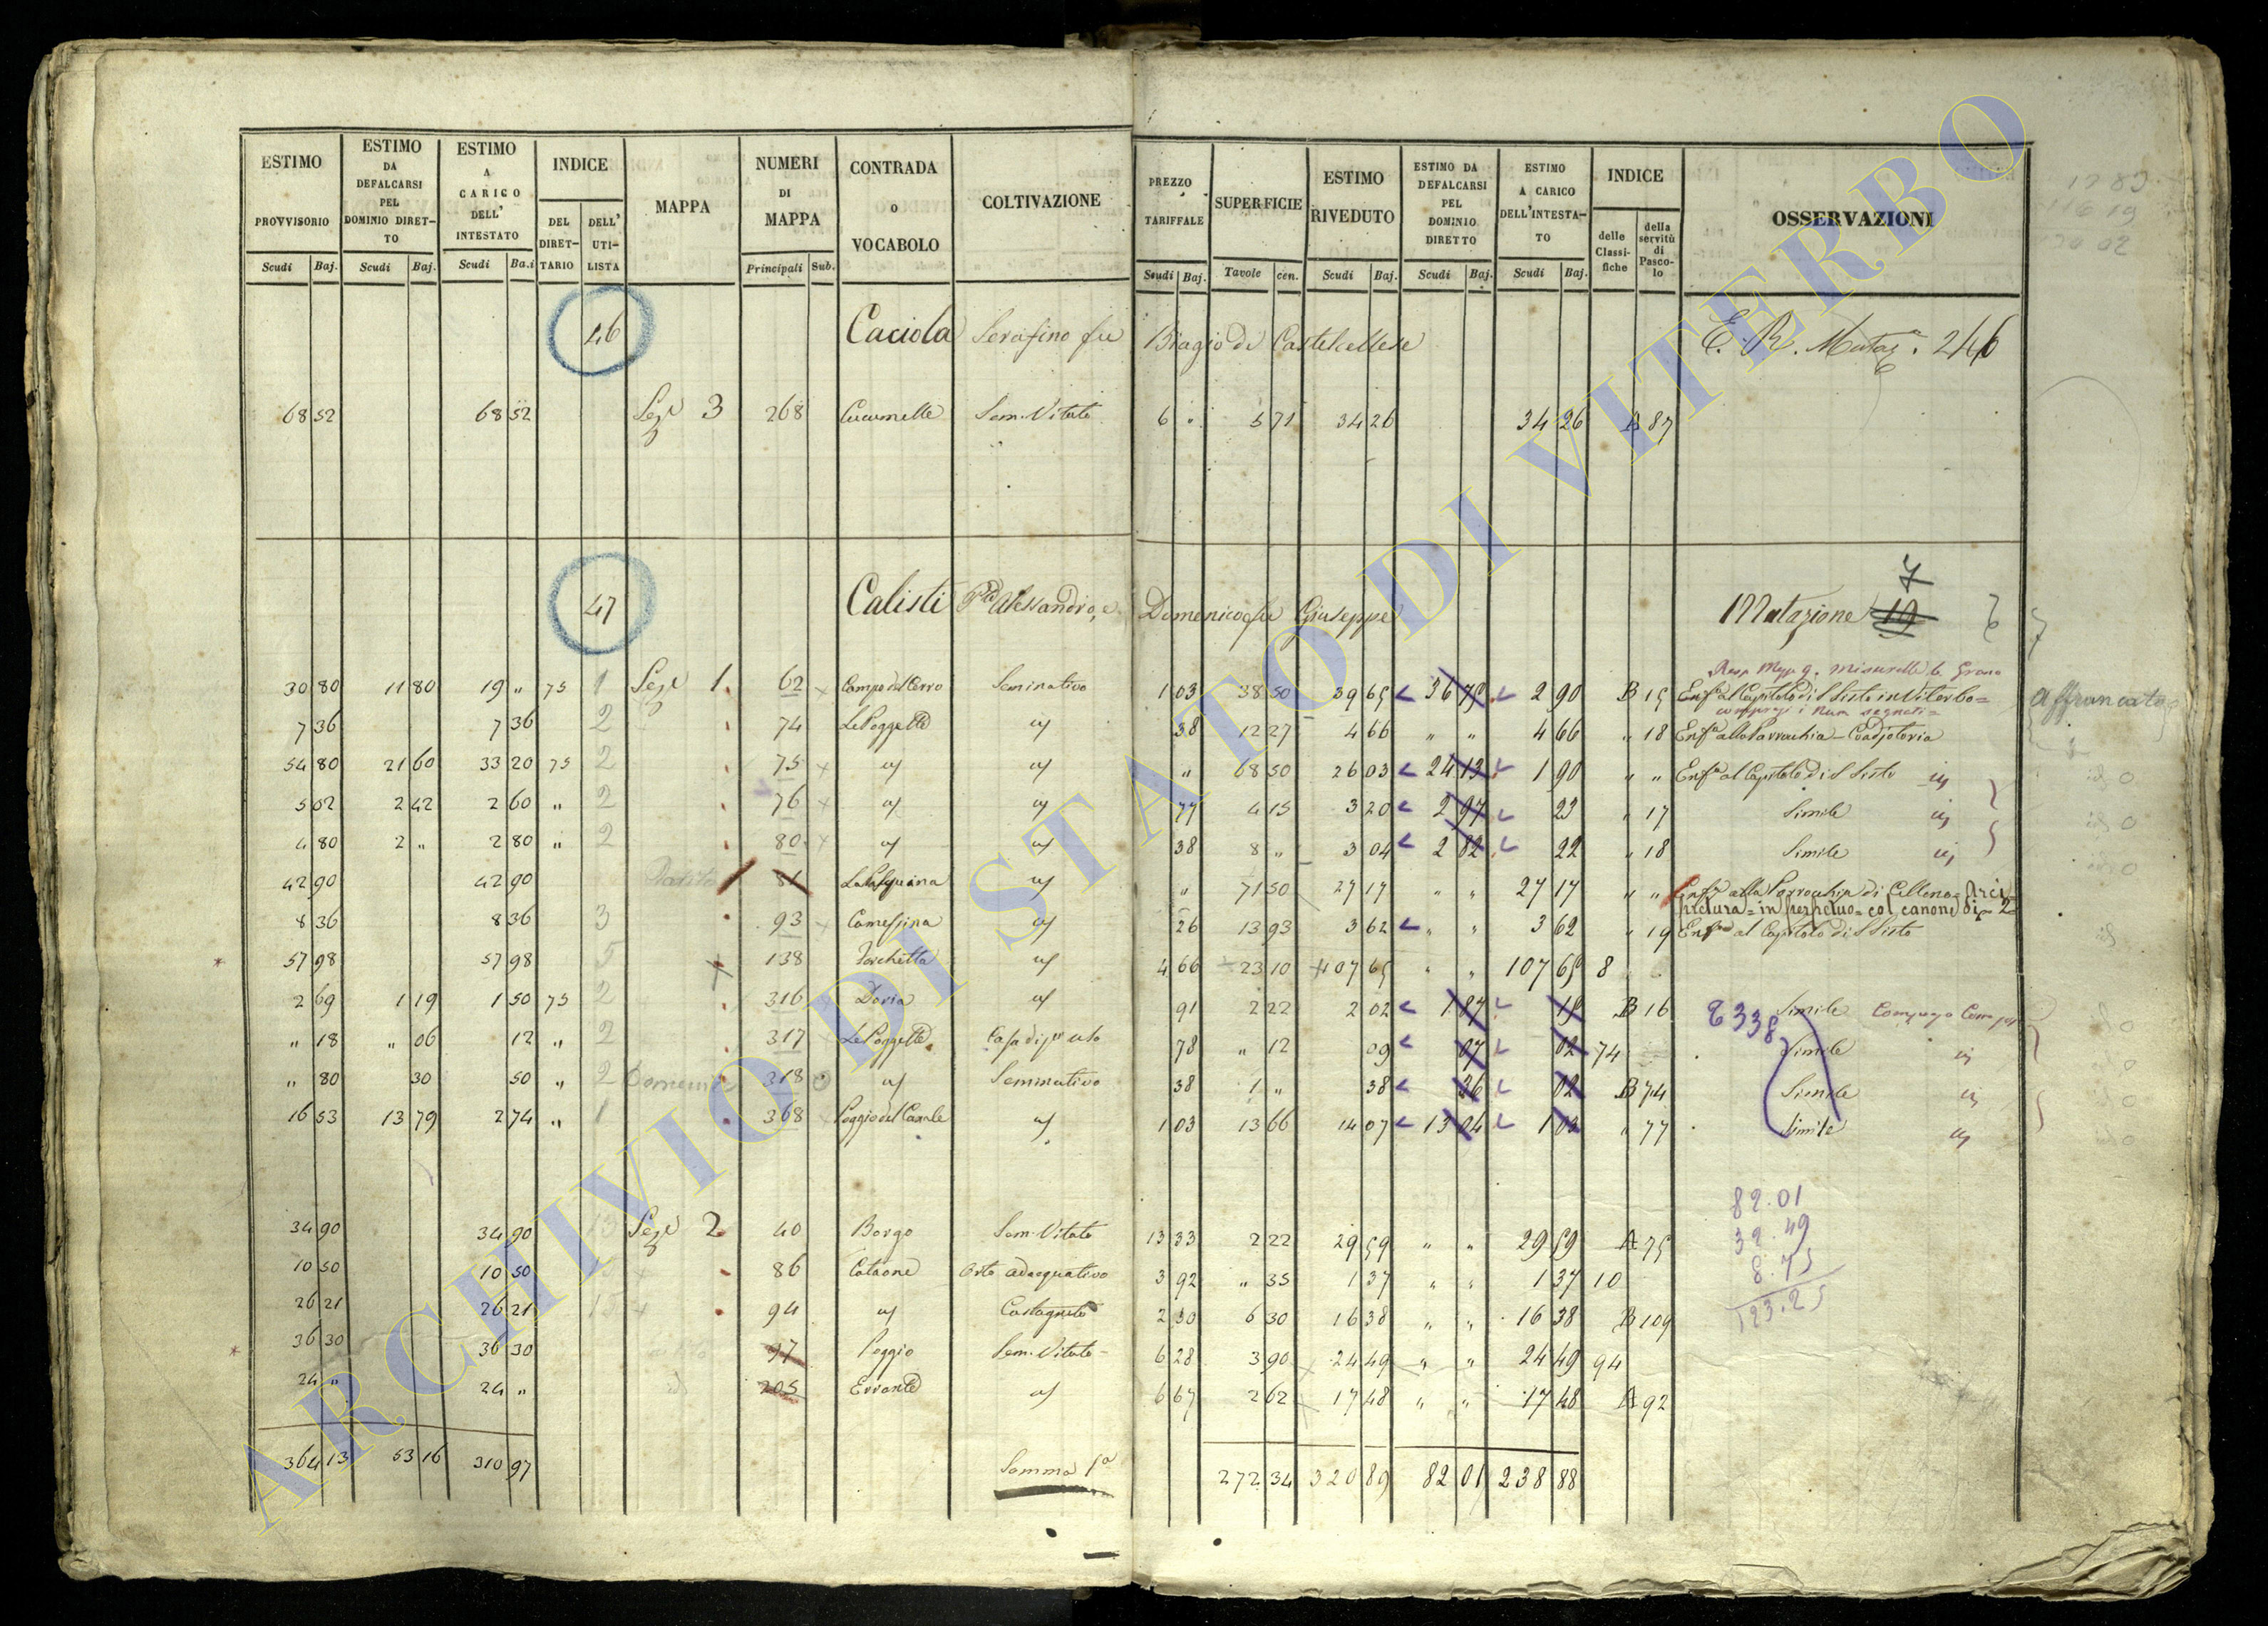 ESTIMO PROVVISORIO Scudi Baj. | ESTIMO DA DEFALCARSI PEL DOMINIO DIRETTO Scudi Baj. | ESTIMO A CARICO DELL' INTESTATO Scudi Ba.i | INDICE DEL DIRETTARIO DELL' UTILISTA | MAPPA | NUMERI DI MAPPA Principali Sub. | CONTRADA O VOCABOLO | COLTIVAZIONE | PREZZO TARIFFALE Scudi Baj. | SUPERFICIE Tavole cen. | ESTIMO RIVEDUTO Scudi Baj. | ESTIMO DA DEFALCARSI PEL DOMINIO DIRETTO Scudi Baj. | ESTIMO A CARICO DELL'INTESTATO Scudi Baj. | INDICE delle Classifiche della servitù di Pascolo | OSSERVAZIONI
46 Caciola Serafino fu Biagio di Castelcellese E. R. Mutaz.e 246
68 52 68 52 Sez.e 3 268 Cucumelle Sem. Vitato 6 " 5 71 34 26 34 26 A 87
47 Calisti Alessandro, e Domenico fu Giuseppe Mutazione 19 7
30 80 11 80 19 " 75 1 Sez.e 1 62 Campo del Cerro Seminativo 1 03 38 50 39 65 36 75 2 90 B 15 Enf.a al Capitolo di S Sisto in Viterbo = affrancato
7 36 7 36 2 74 Le Poggette 38 12 27 4 66 " " 4 66 " 18 Enf.a alla Parrocchia - Coadjutoria
54 80 21 60 33 20 75 2 75 " 68 50 26 03 24 13 1 90 " " Enf.a al Capitolo di S Sisto
5 02 2 42 2 60 " 2 76 77 4 15 3 20 2 97 23 " 17 Simile
4 80 2 " 2 80 " 2 80 38 8 " 3 04 2 82 22 " 18 Simile
42 90 42 90 81 " 71 50 27 17 " " 27 17 " " Enf.a alla Parrocchia di Celleno = Arci
pretura = in perpetuo = col canone di 2
8 36 8 36 3 93 26 13 93 3 62 " " 3 62 " 19 Enf.a al Capitolo di S Sisto
57 98 57 98 5 138 Forchetta 4 66 23 10 107 65 " " 107 65 8
2 69 1 19 1 50 75 2 316 Doria 91 2 22 2 02 1 87 B 16 Simile
" 18 " 06 12 " 2 317 Le Poggette Casa di p.o uso 78 " 12 09 07 02 74 Simile
" 80 30 50 " 2 318 Seminativo 38 1 " 38 36 02 B 74 Simile
16 53 13 79 2 74 " 1 368 Poggio del Casale 1 03 13 66 14 07 13 04 1 03 " 77 Simile
82.01
34 90 34 90 13 Sez.e 2 40 Borgo Sem. Vitato 13 33 2 22 29 59 " " 29 59 A 75 32.49
10 50 10 50 86 Cataone Orto adacquativo 3 92 " 35 1 37 " " 1 37 10 8.75
26 21 26 21 15 94 Castagneto 2 30 6 30 16 38 " " 16 38 B 109 123.25
36 30 36 30 97 Poggio Sem. Vitato 6 28 3 90 24 49 " " 24 49 94
24 " 24 " 205 Errante 6 67 2 62 17 48 " " 17 48 A 92
364 13 53 16 310 97 Somma 1a 272 34 320 89 82 01 238 88
ARCHIVIO DI STATO DI VITERBO